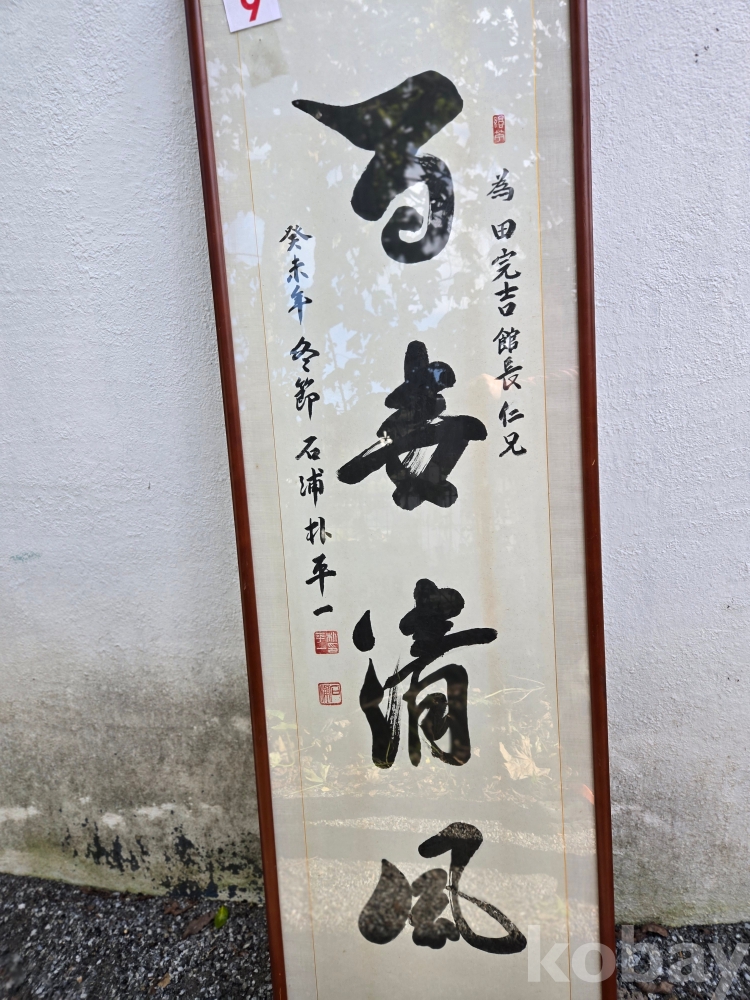 9
為 田完吉 館長 仁兄
百世清風
癸未年 冬節 石浦 朴平一
kobay